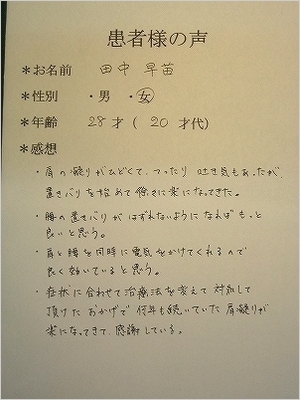 患者様の声
*お名前 田中 早苗
*性別 ・男 ・女
*年齢 28才 ( 20 才代)
*感想
・肩の凝りがひどくて、つったり 吐き気もあったが、
置きバリを始めて徐々に楽になってきた。
・腰の置きバリが はずれないようになれば もっと
良いと思う。
・肩と腰を同時に電気をかけてくれるので
良く効いていると思う。
・症状に合わせて治療法を変えて 対応して
頂けた おかげで 何年も続いていた 肩凝りが
楽になってきて 感謝している。